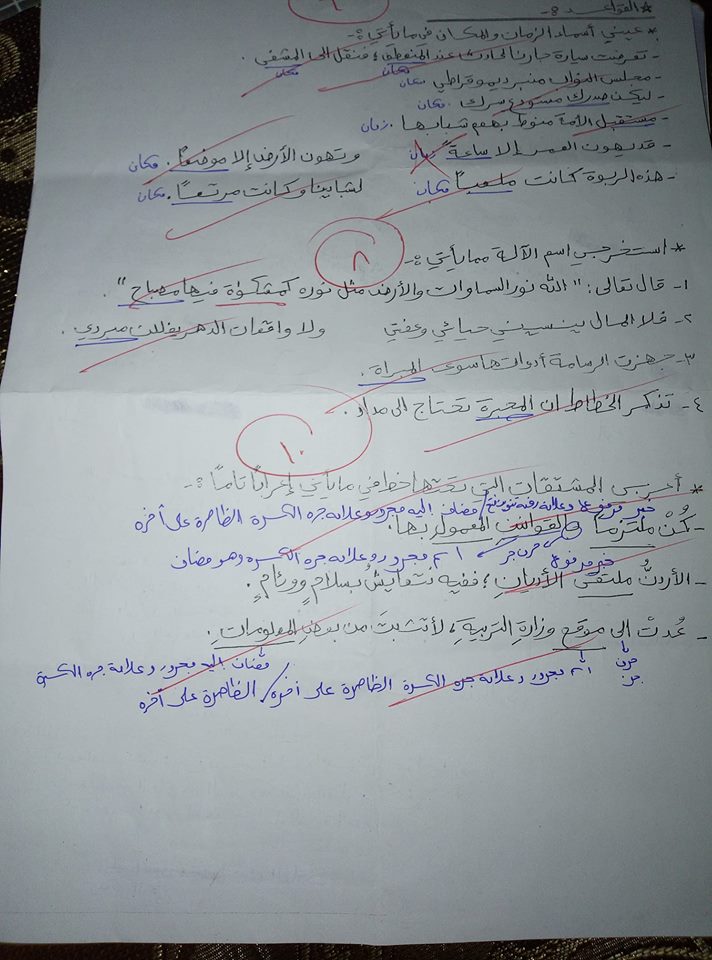 * القواعد :-
٩
* عيني أسماء الزمان والمكان في ما يأتي :-
- تعرضت سيارة جارنا لحادث عند المنعطف ، فنقل إلى المشفى .
مكان مكان
- مجلس النواب منبر ديموقراطي مكان
- ليكن صدرك مستودع سرك . مكان
- مستقبل الأمة منوط بهمم شبابها . زمان
- قد يهون العمر إلا ساعة زمان وتهون الأرض إلا موضعًا . مكان
- هذه الربوة كانت ملعبًا مكان لشبابنا وكانت مرتعًا . مكان
٨
* استخرجي اسم الآلة مما يأتي :-
١- قال تعالى : " الله نور السماوات والأرض مثل نوره كمشكاة فيها مصباح " .
٢- فلا المال ينسيني حيائي وعفتي ولا واقعات الدهر يفللن مبردي .
٣- جهزت الرسامة أدواتها سوى المبراة .
٤- تذكر الخطاط ان المحبرة تحتاج الى مداد .
١٠
* أعربي المشتقات التي تحتها خط في ما يأتي إعرابًا تامًا :-
خبر مرفوع وعلامة رفعه تنوين / مضاف اليه مجرور وعلامة جره الكسرة الظاهرة على أخره
- كُنْ ملتزمًا بالقوانين المعمول بها .
خبر مرفوع حرف جر اسم مجرور وعلامة جره الكسرة وهو مضاف
- الأردنُّ ملتقى الأديانِ ؛ ففيه نتعايشُ بسلامٍ ووئامٍ .
- عُدتُ الى موقع وزارة التربية ، لأتثبتَ من بعض المعلومات .
حرف جر اسم مجرور وعلامة جره الكسرة الظاهرة على أخره / مضاف اليه مجرور وعلامة جره الكسرة
الظاهرة على أخره